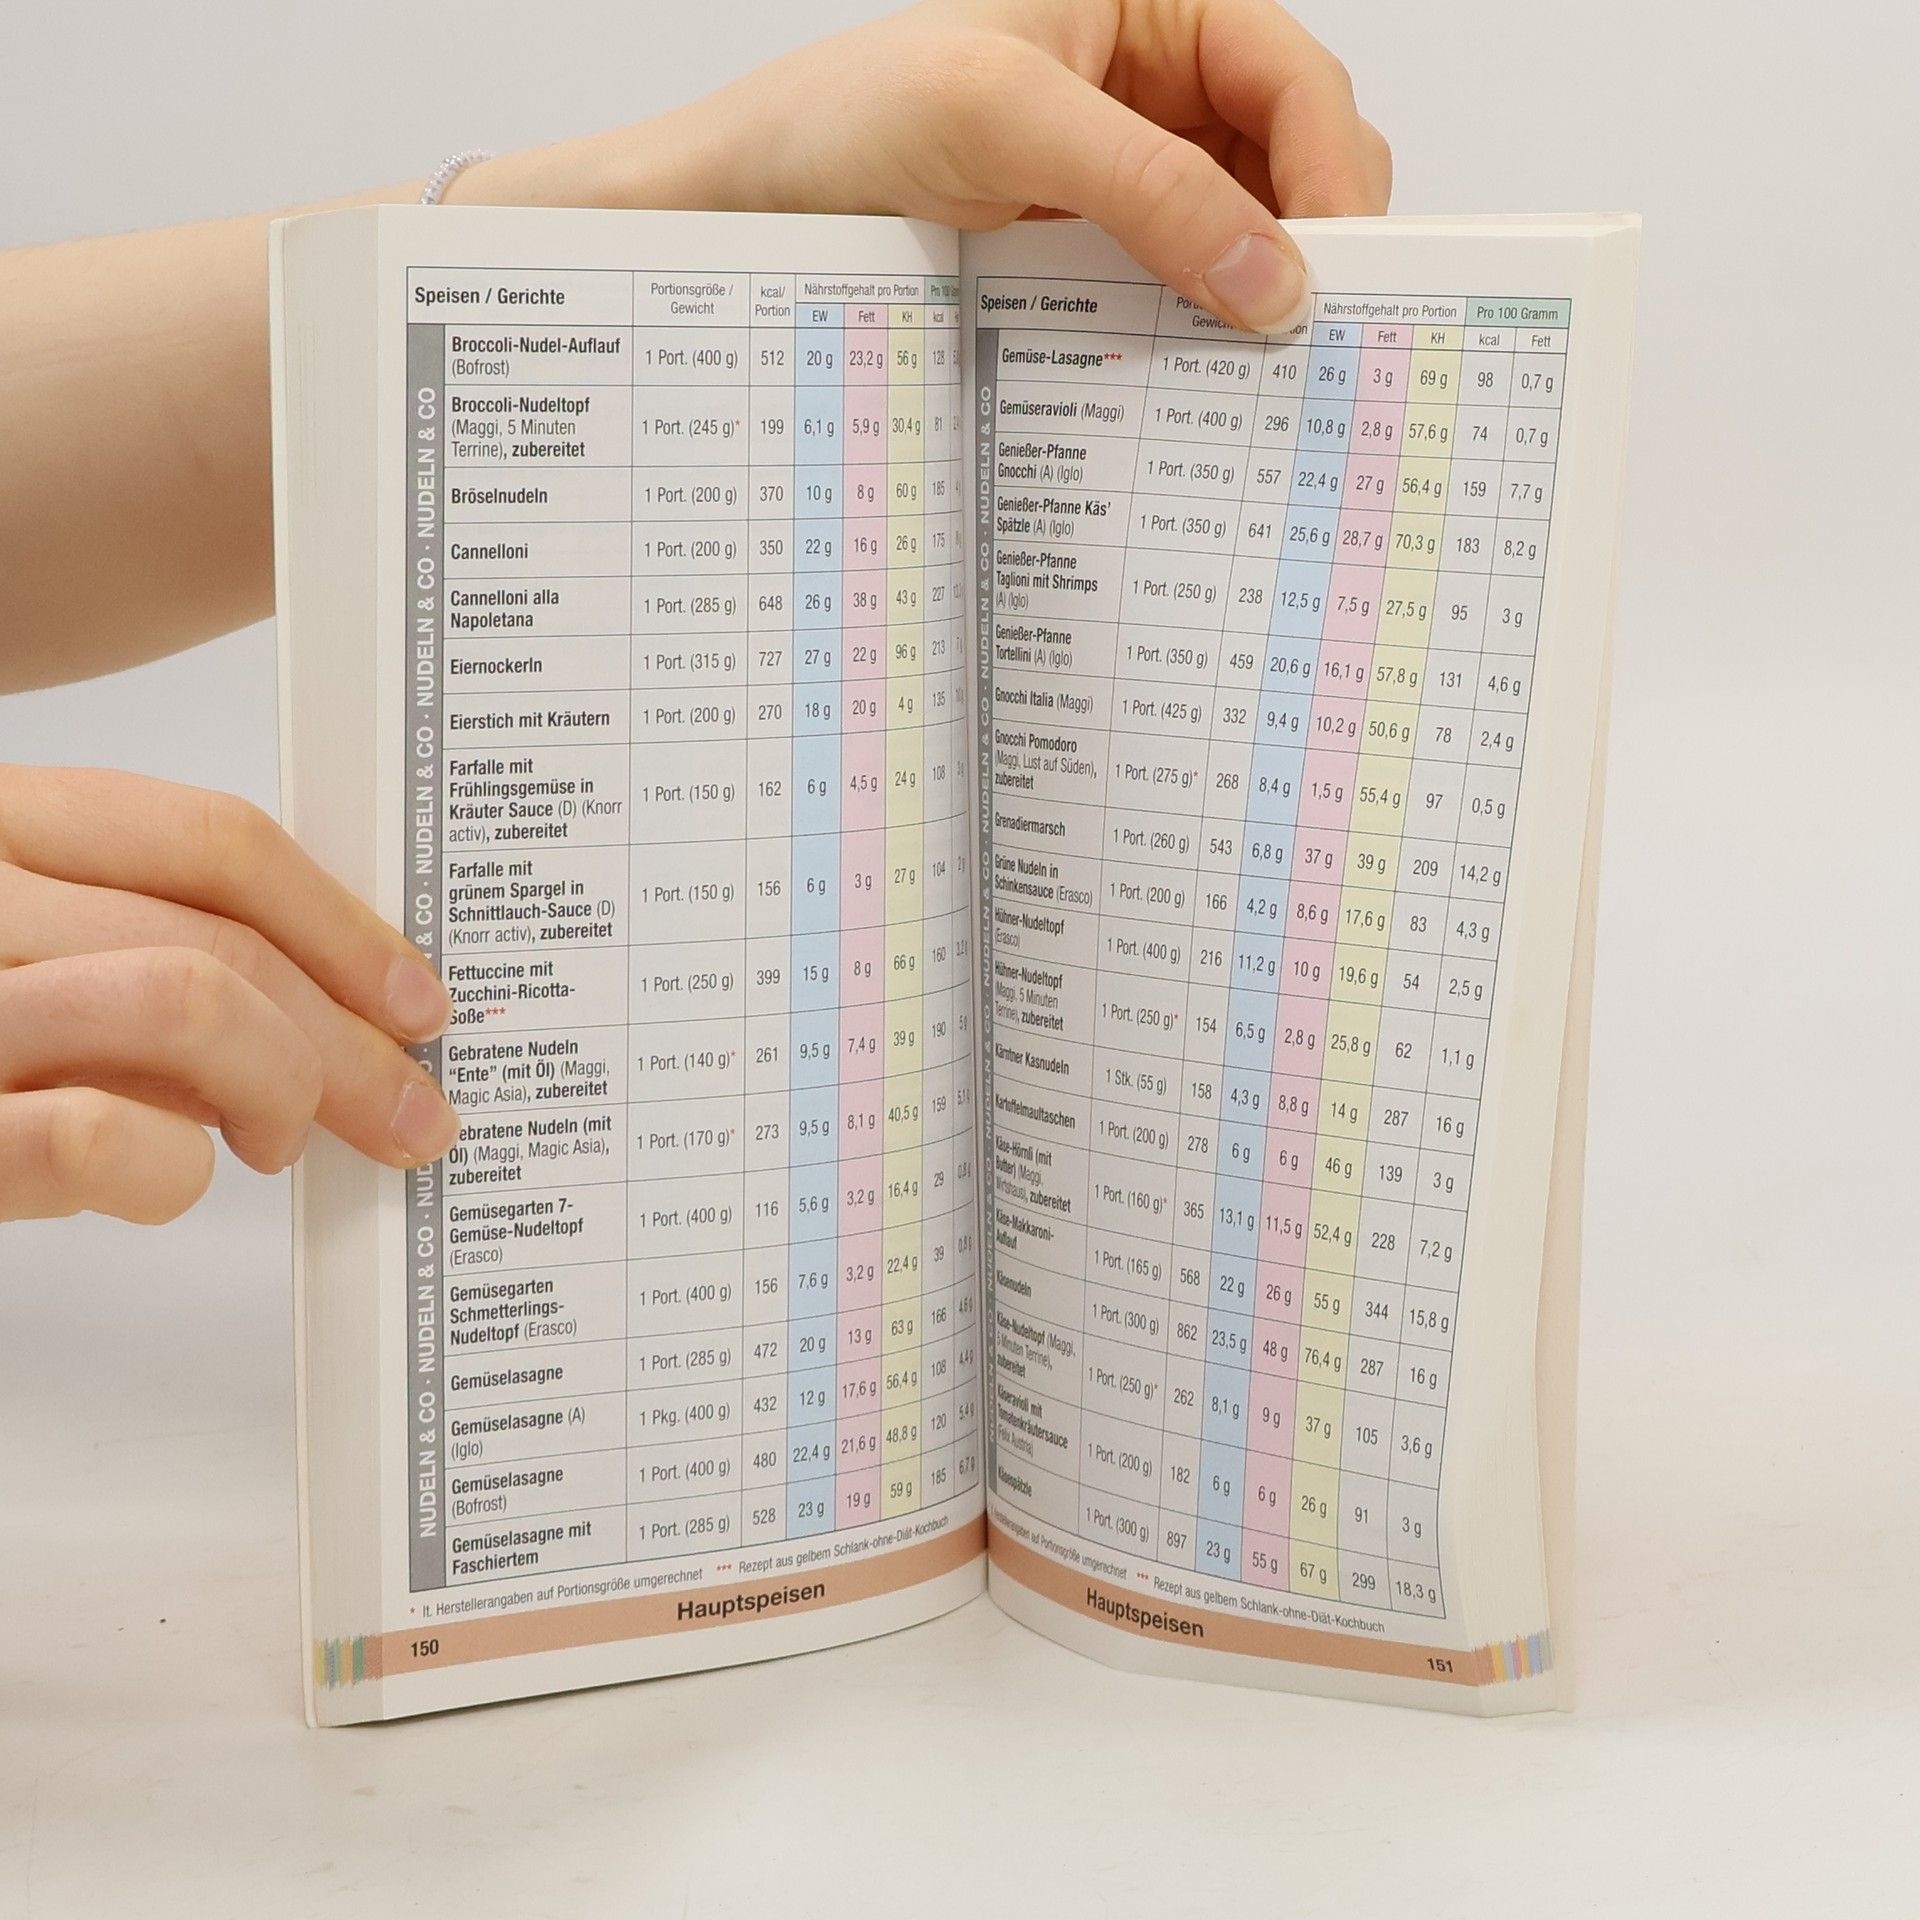 Speisen / Gerichte Portionsgröße / Gewicht kcal/ Portion Nährstoffgehalt pro Portion Pro 100
EW Fett KH kcal
NUDELN & CO · NUDELN & CO · NUDELN & CO · NUDELN & CO
Broccoli-Nudel-Auflauf 1 Port. (400 g) 512 20 g 23,2 g 56 g 128
(Bofrost)
Broccoli-Nudeltopf
(Maggi, 5 Minuten 1 Port. (245 g)* 199 6,1 g 5,9 g 30,4 g 81
Terrine), zubereitet
Bröselnudeln 1 Port. (200 g) 370 10 g 8 g 60 g 185
Cannelloni 1 Port. (200 g) 350 22 g 16 g 26 g 175
Cannelloni alla 1 Port. (285 g) 648 26 g 38 g 43 g 227
Napoletana
Eiernockerln 1 Port. (315 g) 727 27 g 22 g 96 g 213
Eierstich mit Kräutern 1 Port. (200 g) 270 18 g 20 g 4 g 135
Farfalle mit
Frühlingsgemüse in 1 Port. (150 g) 162 6 g 4,5 g 24 g 108
Kräuter Sauce (D) (Knorr
activ), zubereitet
Farfalle mit
grünem Spargel in 1 Port. (150 g) 156 6 g 3 g 27 g 104
Schnittlauch-Sauce (D)
(Knorr activ), zubereitet
Fettuccine mit
Zucchini-Ricotta- 1 Port. (250 g) 399 15 g 8 g 66 g 160
Soße***
Gebratene Nudeln
“Ente” (mit Öl) (Maggi, 1 Port. (140 g)* 261 9,5 g 7,4 g 39 g 190
Magic Asia), zubereitet
ebratene Nudeln (mit
Öl) (Maggi, Magic Asia), 1 Port. (170 g)* 273 9,5 g 8,1 g 40,5 g 159
zubereitet
Gemüsegarten 7-
Gemüse-Nudeltopf 1 Port. (400 g) 116 5,6 g 3,2 g 16,4 g 29
(Erasco)
Gemüsegarten
Schmetterlings- 1 Port. (400 g) 156 7,6 g 3,2 g 22,4 g 39
Nudeltopf (Erasco)
Gemüselasagne 1 Port. (285 g) 472 20 g 13 g 63 g 166
Gemüselasagne (A) 1 Pkg. (400 g) 432 12 g 17,6 g 56,4 g 108
(Iglo)
Gemüselasagne 1 Port. (400 g) 480 22,4 g 21,6 g 48,8 g 120
(Bofrost)
Gemüselasagne mit 1 Port. (285 g) 528 23 g 19 g 59 g 185
Faschiertem
* lt. Herstellerangaben auf Portionsgröße umgerechnet *** Rezept aus gelbem Schlank-ohne-Diät-Kochbuch
Hauptspeisen
150
Speisen / Gerichte Nährstoffgehalt pro Portion Pro 100 Gramm
EW Fett KH kcal Fett
NUDELN & CO · NUDELN & CO · NUDELN & CO
Gemüse-Lasagne*** 1 Port. (420 g) 410 26 g 3 g 69 g 98 0,7 g
Gemüseravioli (Maggi) 1 Port. (400 g) 296 10,8 g 2,8 g 57,6 g 74 0,7 g
Genießer-Pfanne 1 Port. (350 g) 557 22,4 g 27 g 56,4 g 159 7,7 g
Gnocchi (A) (Iglo)
Genießer-Pfanne Käs' 1 Port. (350 g) 641 25,6 g 28,7 g 70,3 g 183 8,2 g
Spätzle (A) (Iglo)
Genießer-Pfanne
Taglioni mit Shrimps 1 Port. (250 g) 238 12,5 g 7,5 g 27,5 g 95 3 g
(A) (Iglo)
Genießer-Pfanne 1 Port. (350 g) 459 20,6 g 16,1 g 57,8 g 131 4,6 g
Tortellini (A) (Iglo)
Gnocchi Italia (Maggi) 1 Port. (425 g) 332 9,4 g 10,2 g 50,6 g 78 2,4 g
Gnocchi Pomodoro
(Maggi, Lust auf Süden), 1 Port. (275 g)* 268 8,4 g 1,5 g 55,4 g 97 0,5 g
zubereitet
Grenadiermarsch 1 Port. (260 g) 543 6,8 g 37 g 39 g 209 14,2 g
Grüne Nudeln in 1 Port. (200 g) 166 4,2 g 8,6 g 17,6 g 83 4,3 g
Schinkensauce (Erasco)
Hühner-Nudeltopf 1 Port. (400 g) 216 11,2 g 10 g 19,6 g 54 2,5 g
(Erasco)
Hühner-Nudeltopf
(Maggi, 5 Minuten 1 Port. (250 g)* 154 6,5 g 2,8 g 25,8 g 62 1,1 g
Terrine), zubereitet
Kärntner Kasnudeln 1 Stk. (55 g) 158 4,3 g 8,8 g 14 g 287 16 g
Kartoffelmaultaschen 1 Port. (200 g) 278 6 g 6 g 46 g 139 3 g
Käse-Hörnli (mit
Butter) (Maggi, 1 Port. (160 g)* 365 13,1 g 11,5 g 52,4 g 228 7,2 g
Wirtshaus), zubereitet
Käse-Makkaroni- 1 Port. (165 g) 568 22 g 26 g 55 g 344 15,8 g
Auflauf
Käsenudeln 1 Port. (300 g) 862 23,5 g 48 g 76,4 g 287 16 g
Käse-Nudeltopf (Maggi,
5 Minuten Terrine), 1 Port. (250 g)* 262 8,1 g 9 g 37 g 105 3,6 g
zubereitet
Käseravioli mit
Tomatenkräutersauce 1 Port. (200 g) 182 6 g 6 g 26 g 91 3 g
(Felix Austria)
Käsespätzle 1 Port. (300 g) 897 23 g 55 g 67 g 299 18,3 g
Herstellerangaben auf Portionsgröße umgerechnet *** Rezept aus gelbem Schlank-ohne-Diät-Kochbuch
Hauptspeisen
151